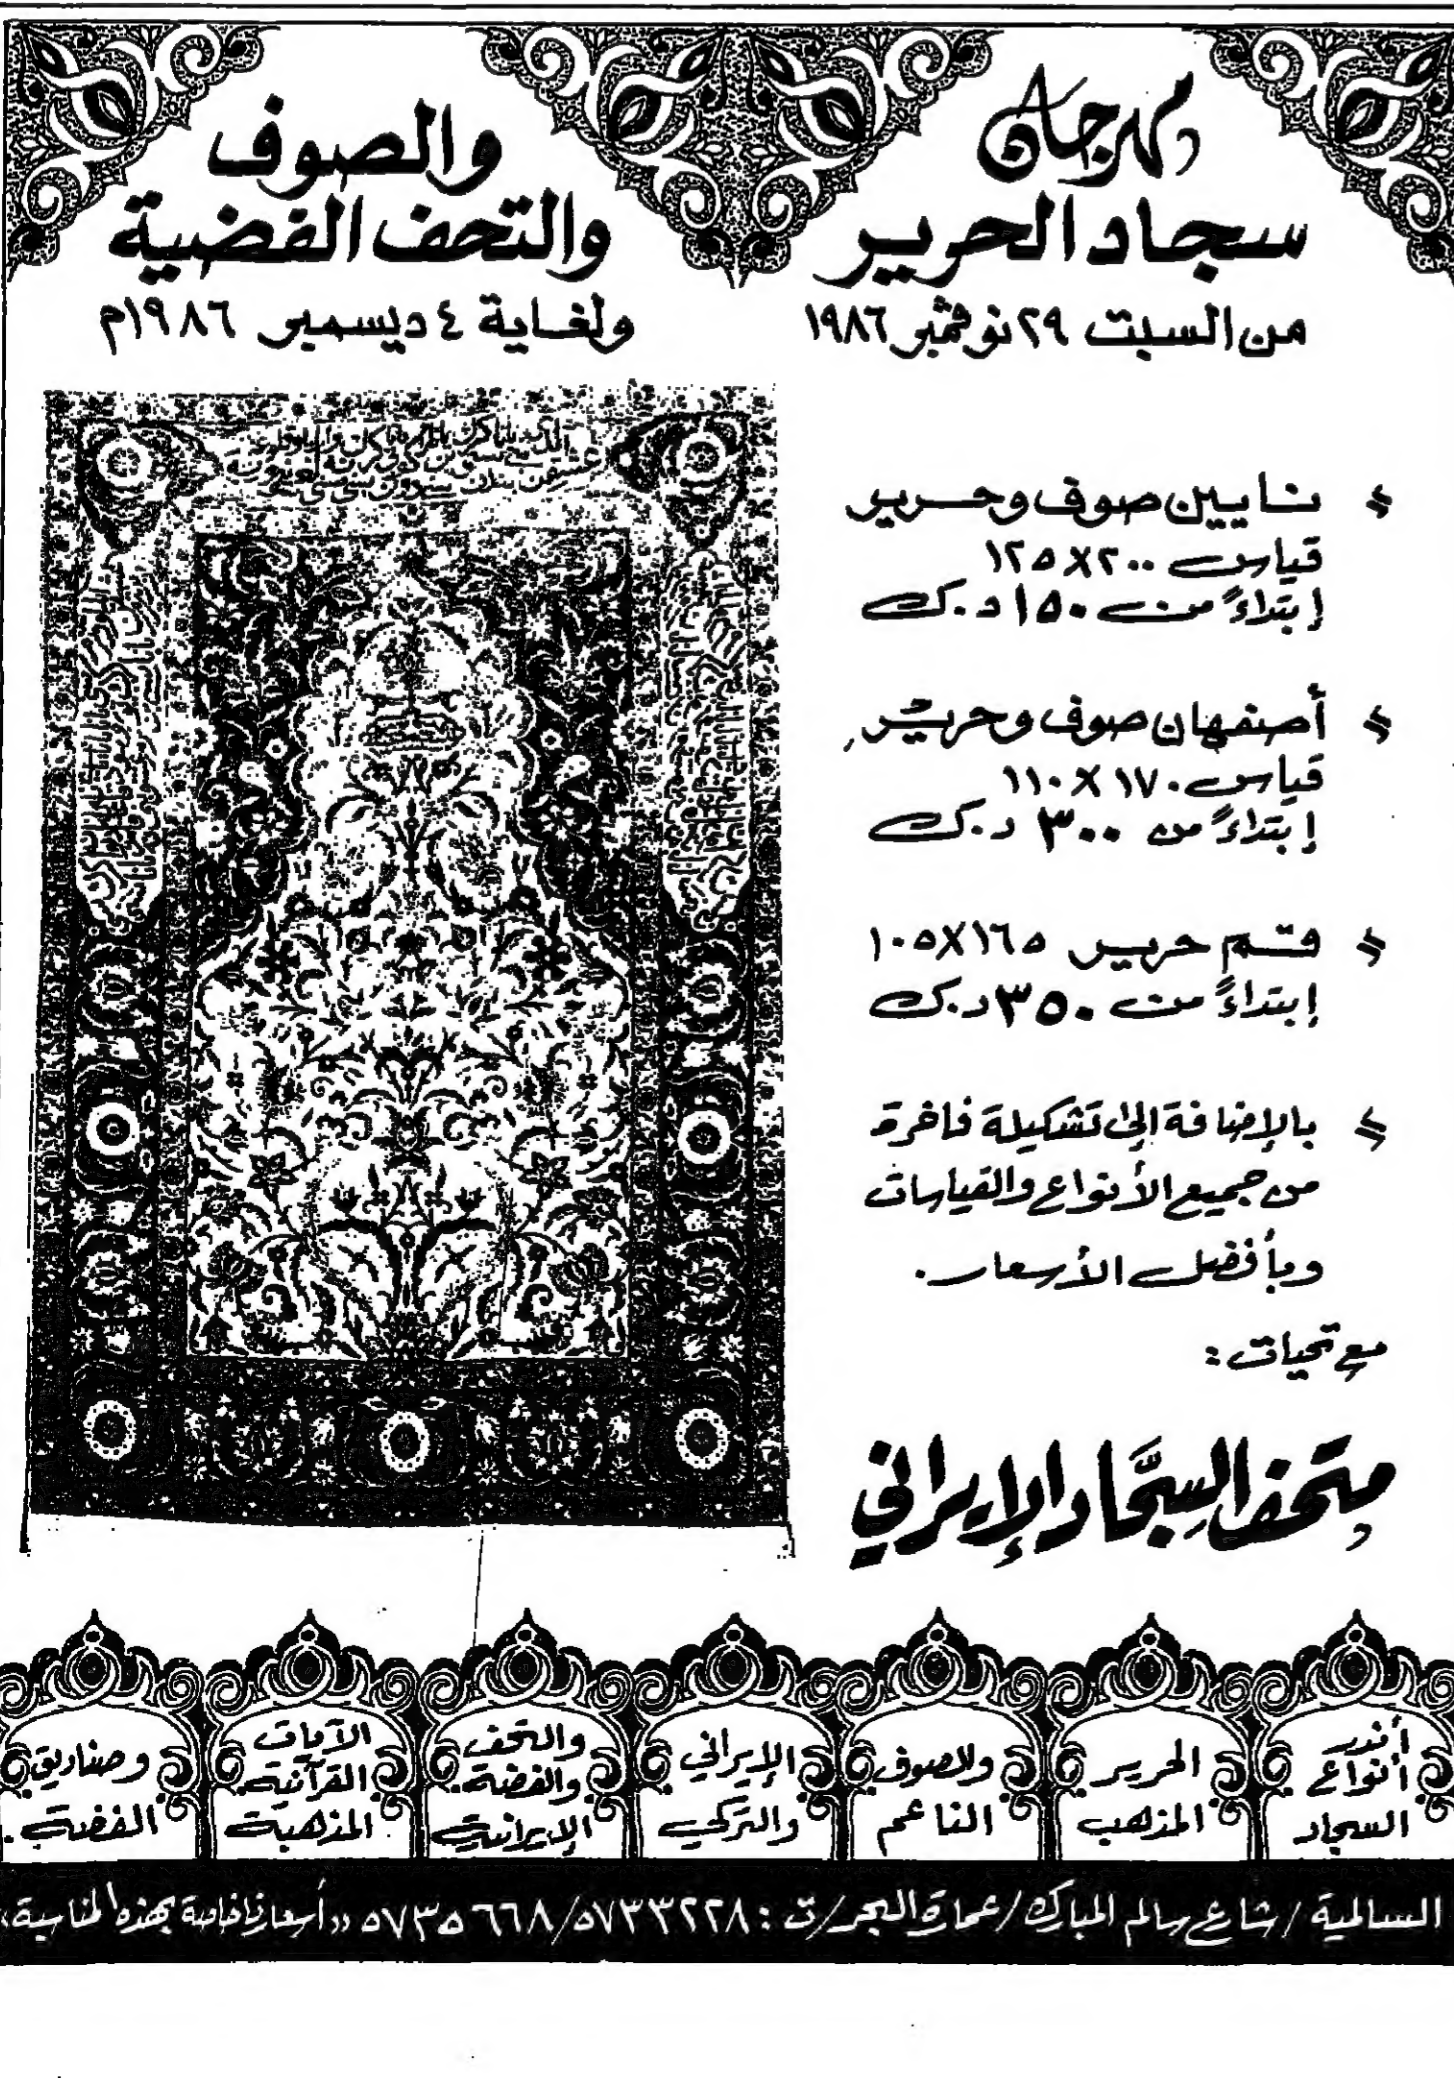 مهرجان
سجاد الحرير
والصوف
والتحف الفضية
من السبت ٢٩ نوفمبر ١٩٨٦
ولغاية ٤ ديسمبر ١٩٨٦م
نايين صوف وحرير
قياس ٢٠٠×١٢٥
إبتداءً من ١٥٠ د.ك
أصفهان صوف وحرير
قياس ١٧٠×١١٠
إبتداءً من ٣٠٠ د.ك
قم حرير ١٦٥×١٠٥
إبتداءً من ٣٥٠ د.ك
بالإضافة إلى تشكيلة فاخرة
من جميع الأنواع والقياسات
وبأفضل الأسعار.
مع تحيات:
متحف السجَّاد الإيراني
أندر
أنواع
السجاد
الحرير
المذهب
والصوف
الناعم
الإيراني
والتركي
والتحف
والفضة
الإيرانية
الآيات
القرآنية
المذهبة
وصناديق
الفضة.
السالمية / شارع سالم المبارك / عمارة البحر / ت: ٥٧٣٣٢٢٨/ ٥٧٣٥٦٦٨ ،،أسعارنا خاصة بهذه المناسبة،،